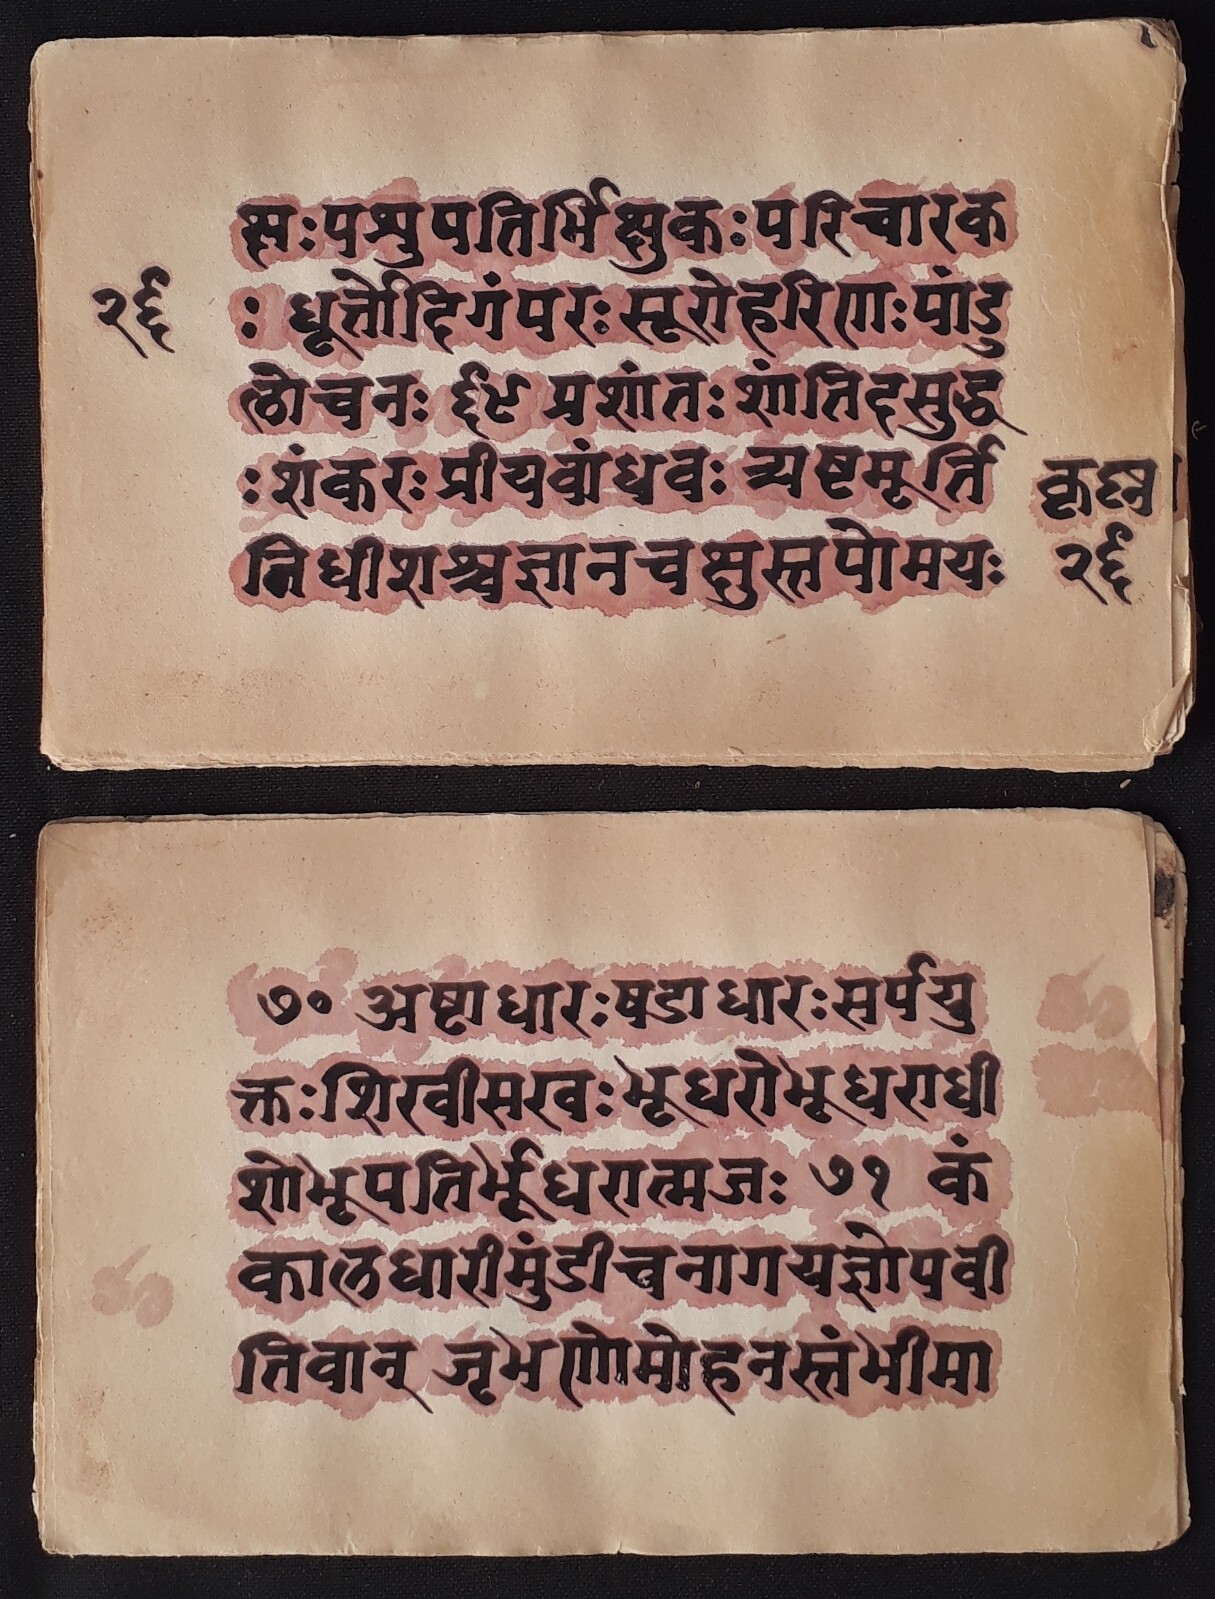 क्षः पशुपतिर्भिक्षुकः परिचारक
२६
: धूर्तोदिगंपरः सूरोहरिणः पांडु
लोचनः ६९ प्रशांतः शांतिदसुद्ध
: शंकरः प्रीयवांधवः अष्टमूर्ति
कृष्न
र्निधीशश्चज्ञानचक्षुस्तपोमयः
२६
७० अष्टाधारः षडाधारः सर्पयु
क्तः शिखीसखः भूधरोभूधराधी
शोभूपतिर्भूधरात्मजः ७१ कं
कालधारीमुंडीचनागयज्ञोपवी
तिवान् जृभणोमोहनस्तंभीमा